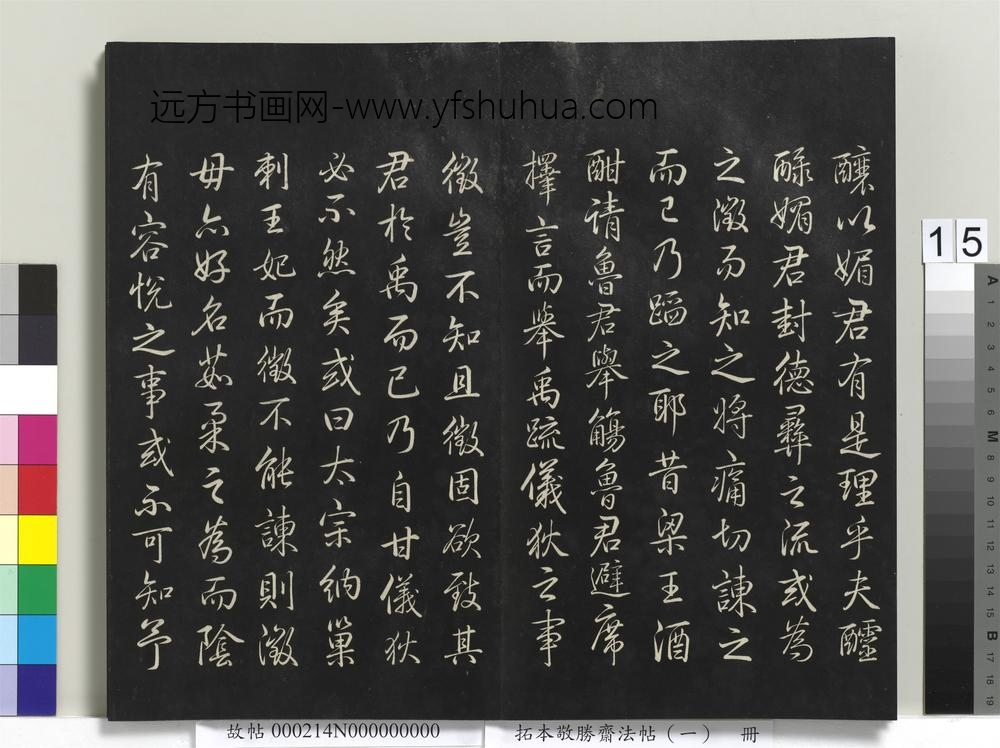 远方书画网-www.yfshuhua.com
釀以媚君有是理乎夫醽
醁媚君封德彝之流或為
之徵而知之將痛切諫之
而已乃蹈之耶昔梁王酒
酣請魯君舉觴魯君避席
擇言而舉禹疏儀狄之事
徵豈不知且徵固欲致其
君於禹而已乃自甘儀狄
必不然矣或曰太宗納巢
刺王妃而徵不能諫則徵
毋亦好名茹柔之為而陰
有容悅之事或不可知予
15
A 1 2 3 4 5 6 M 8 9 10 11 12 13 14 15 B 17 18 19
故帖 000214N000000000
拓本敬勝齋法帖（一） 冊